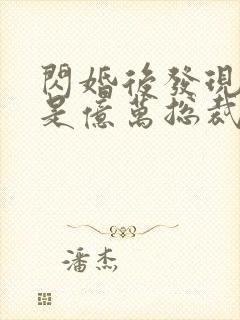 閃婚後發現
是億萬總裁
潘杰